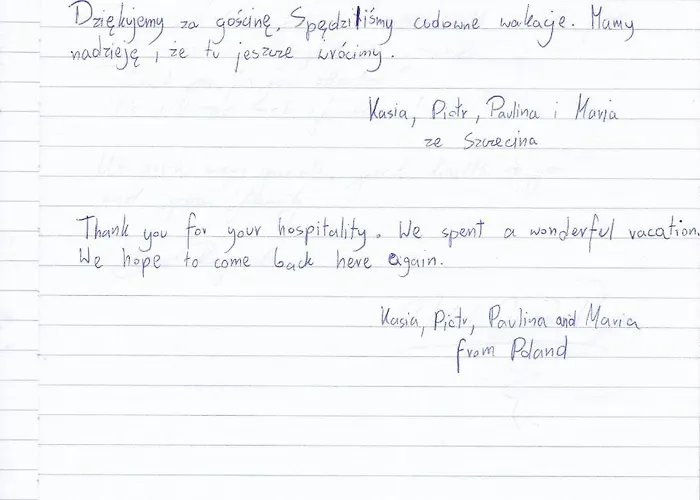 Dziękujemy za gościnę. Spędziliśmy cudowne wakacje. Mamy
nadzieję, że tu jeszcze wrócimy.
Kasia, Piotr, Paulina i Maria
ze Szczecina
Thank you for your hospitality. We spent a wonderful vacation.
We hope to come back here again.
Kasia, Piotr, Paulina and Maria
from Poland